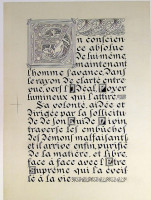 En conscience
absolue
de lui même,
maintenant
l'homme s'avance, dans
le rayon de clarté entre
vue, vers l'Idéal, Foyer
lumineux qui l'attire
Sa volonté, aidée et
dirigée par la sollicitu
de de son Guide
traverse les embûches
des Démons malfaisants
et il arrive enfin, purifié
de la matière, et libre,
face à face avec l'Être
Suprême qui l'a éveil
lé à la vie